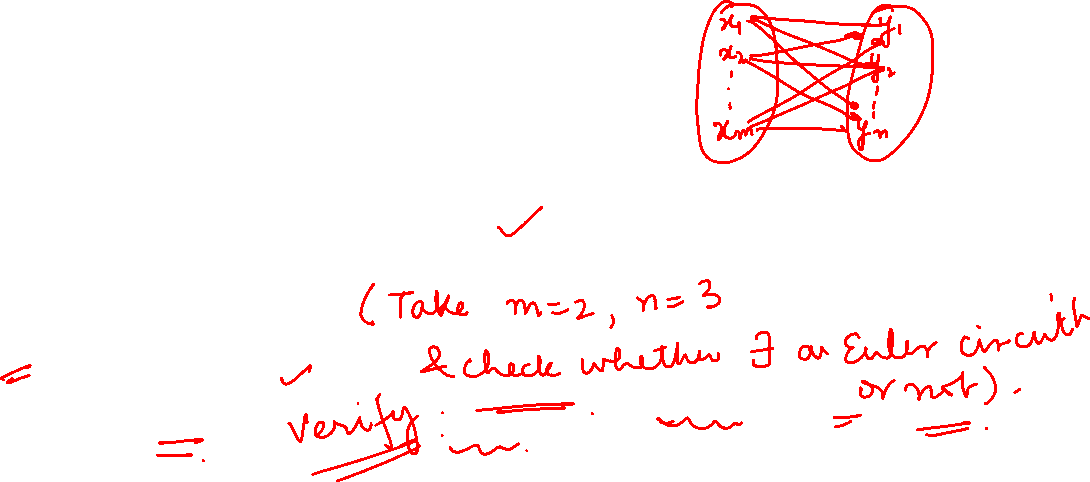 x1 y1
x2 y2
xm yn
(Take m=2, n=3
& check whether ∃ an Euler circuit
or not).
Verify